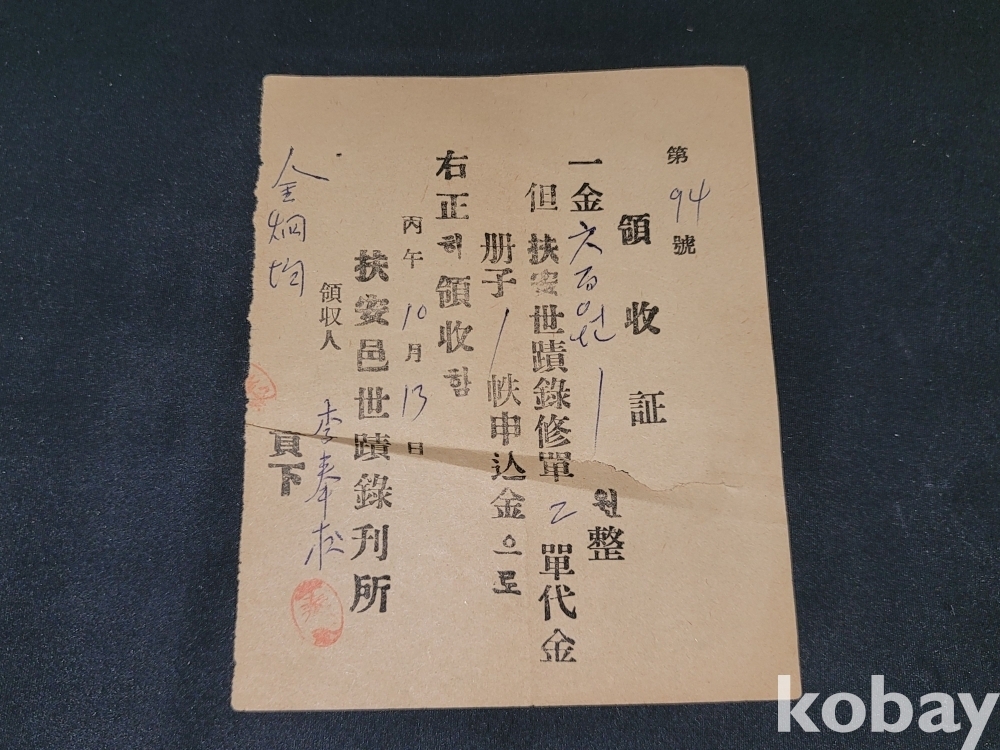 第 94 號
領收証
一金 六百원 원整
但 扶安世蹟錄修單 乙 單代金
册子 1 帙申込金으로
右正히領收함
丙午 10月 13日
扶安邑世蹟錄刊所
領収人 李奉松
金炯均 貢下
kobay